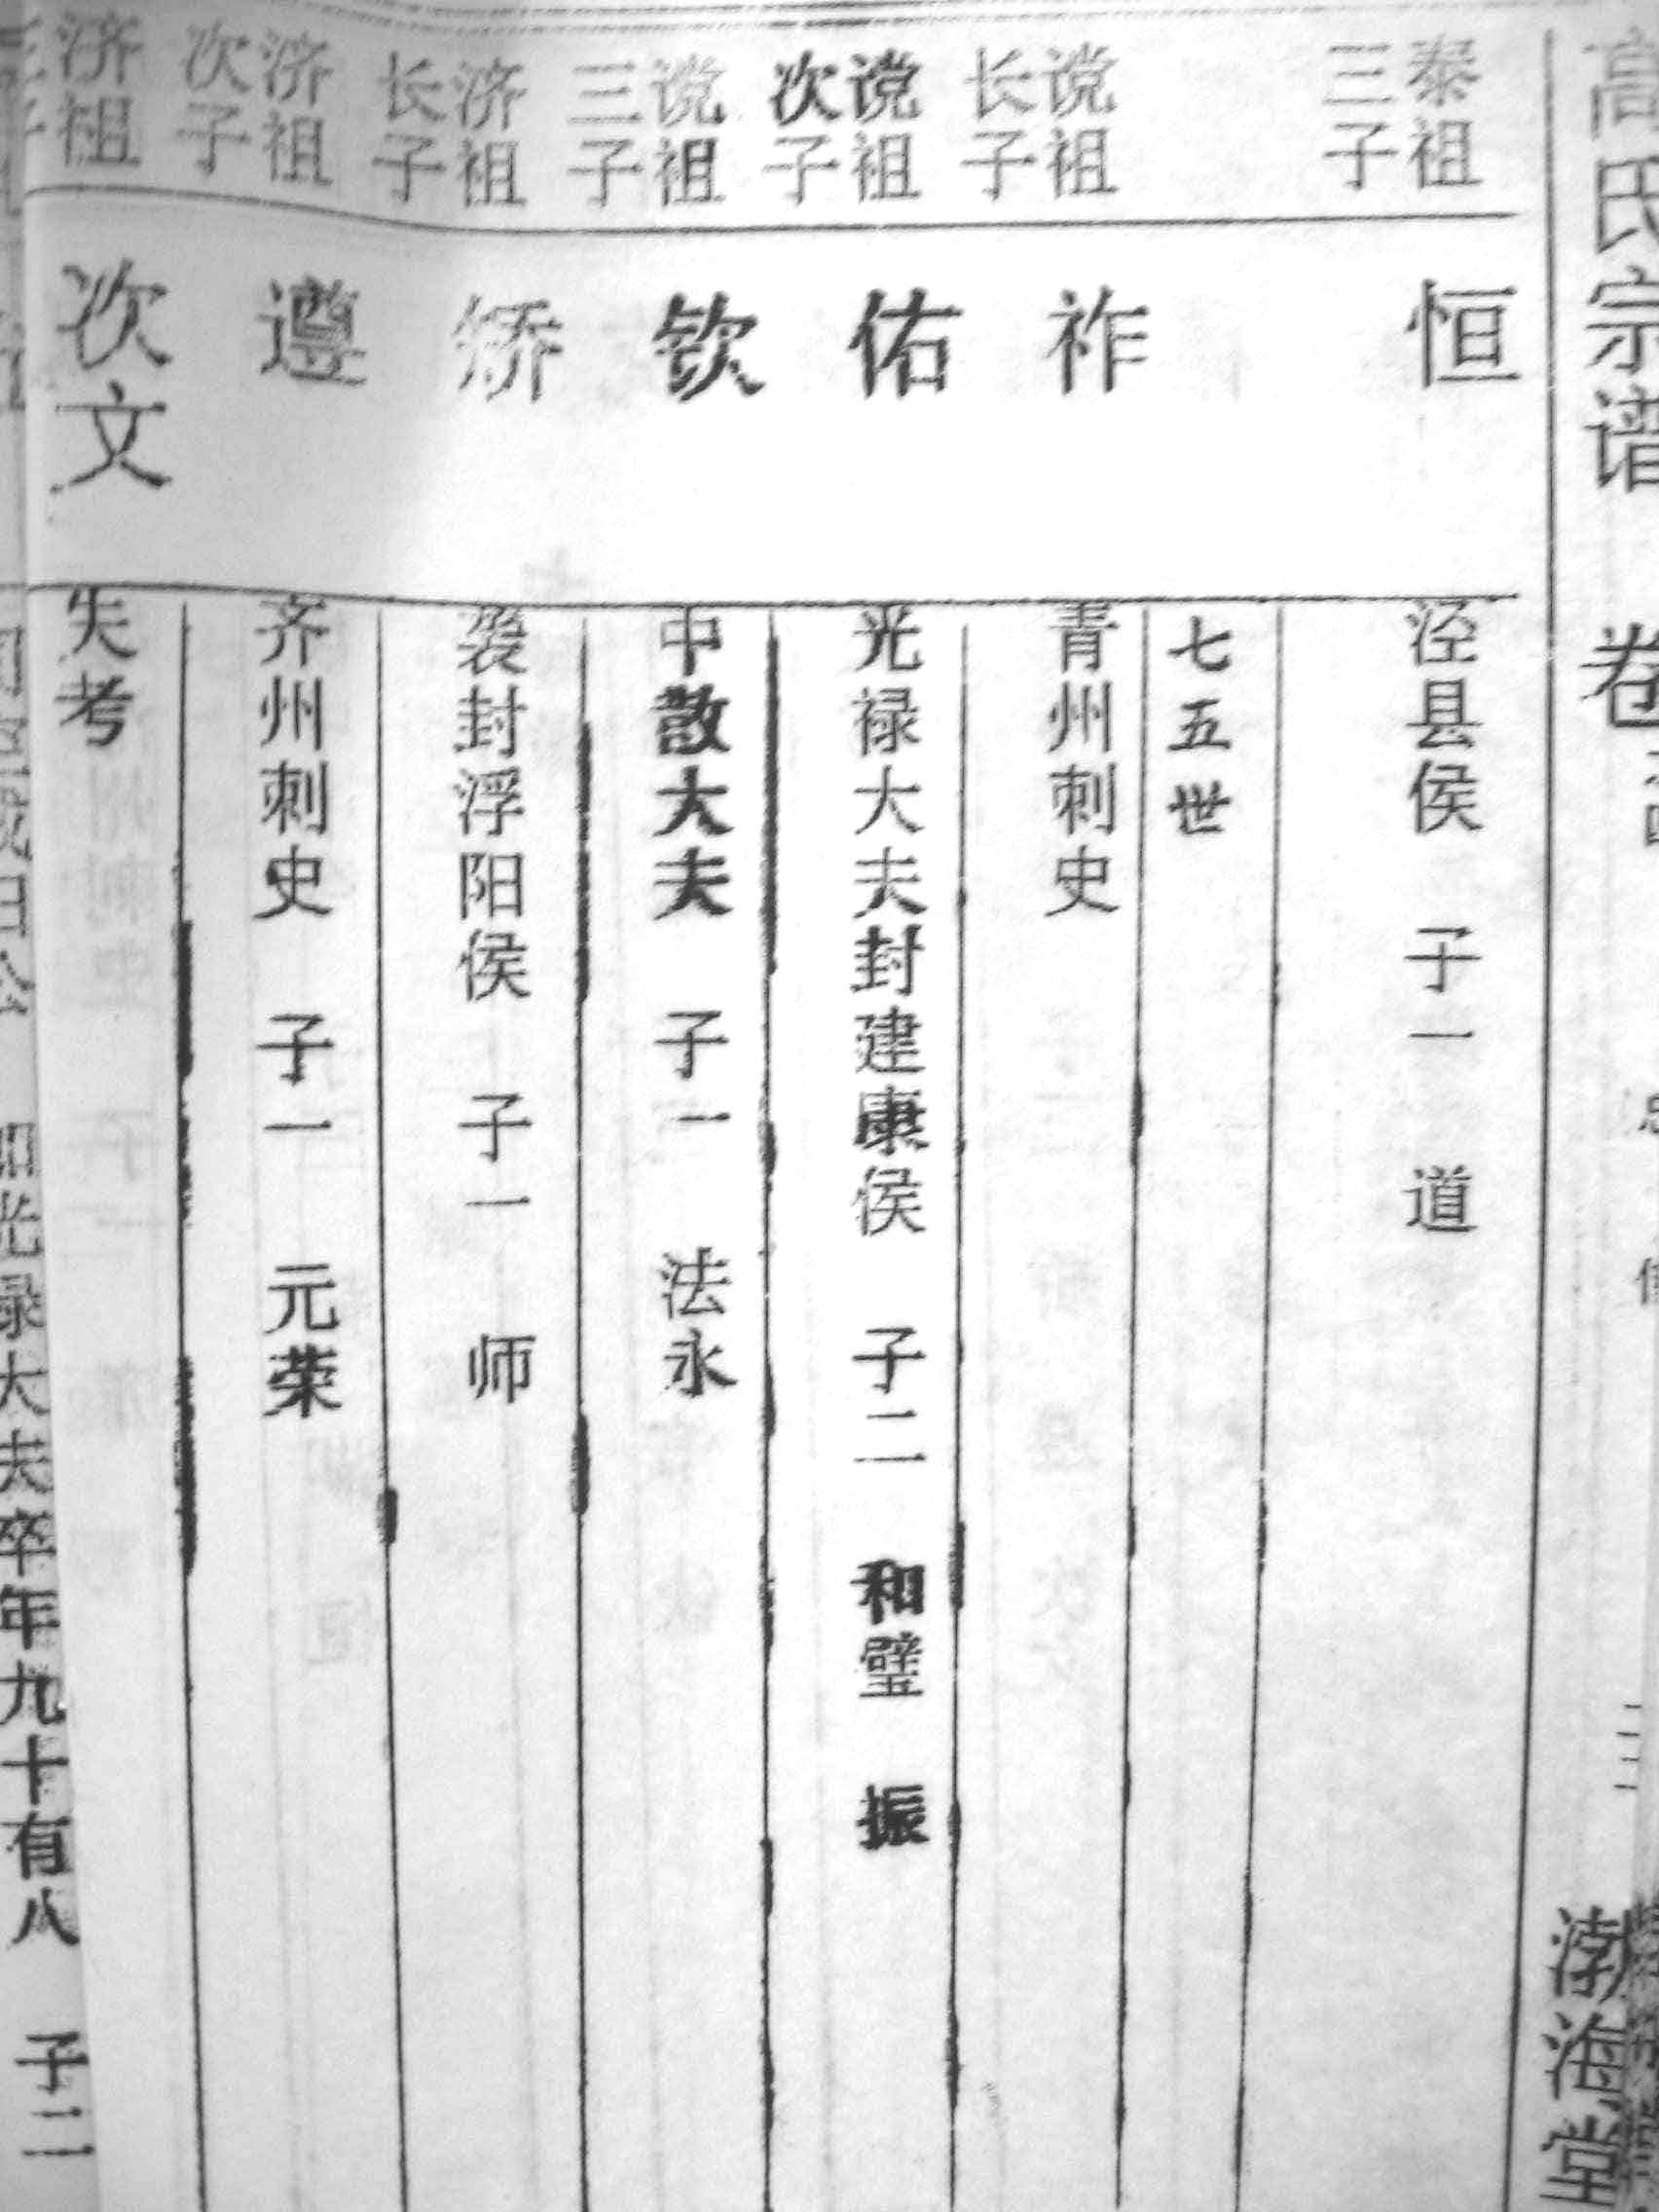 高氏宗谱 卷
渤海堂
泰祖三子
恒
泾县侯 子一 道
七五世
谠祖长子
祚
青州刺史
谠祖次子
佑
光禄大夫封建康侯 子二 和璧 振
谠祖三子
钦
中散大夫 子一 法永
济祖长子
矫
袭封浮阳侯 子一 师
济祖次子
遵
齐州刺史 子一 元荣
济祖
次文
失考
光禄大夫卒年九十有八 子二